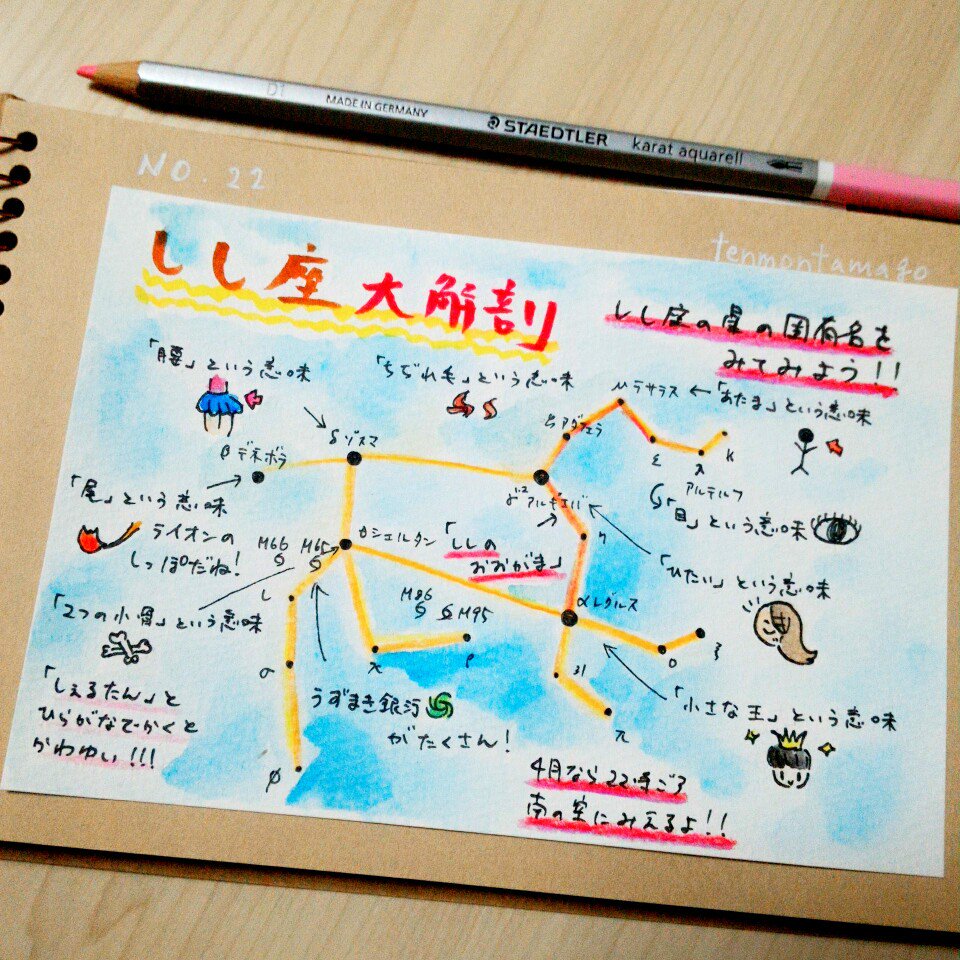 D1 MADE IN GERMANY STAEDTLER karat aquarell
NO. 22
tenmontamago
しし座 大解剖
しし座の星の固有名を
みてみよう!!
「腰」という意味
「ちぢれ毛」という意味
μラサラス ← 「あたま」という意味
εアダフェラ
δゾスマ
βデネボラ
ε
λ
κ
アルテルフ
γ1.2アルギエバ
「目」という意味
「尾」という意味
ライオンの
しっぽだね!
M66 M65
θシェルタン
「ししの
おおがま」
η
「ひたい」という意味
M86
M95
αレグルス
ι
「2つの小骨」という意味
σ
χ
ρ
31
ο
ξ
π
「しぇるたん」と
ひらがなでかくと
かわゆい!!!
うずまき銀河
がたくさん!
「小さな王」という意味
φ
4月なら22時ごろ
南の空にみえるよ!!